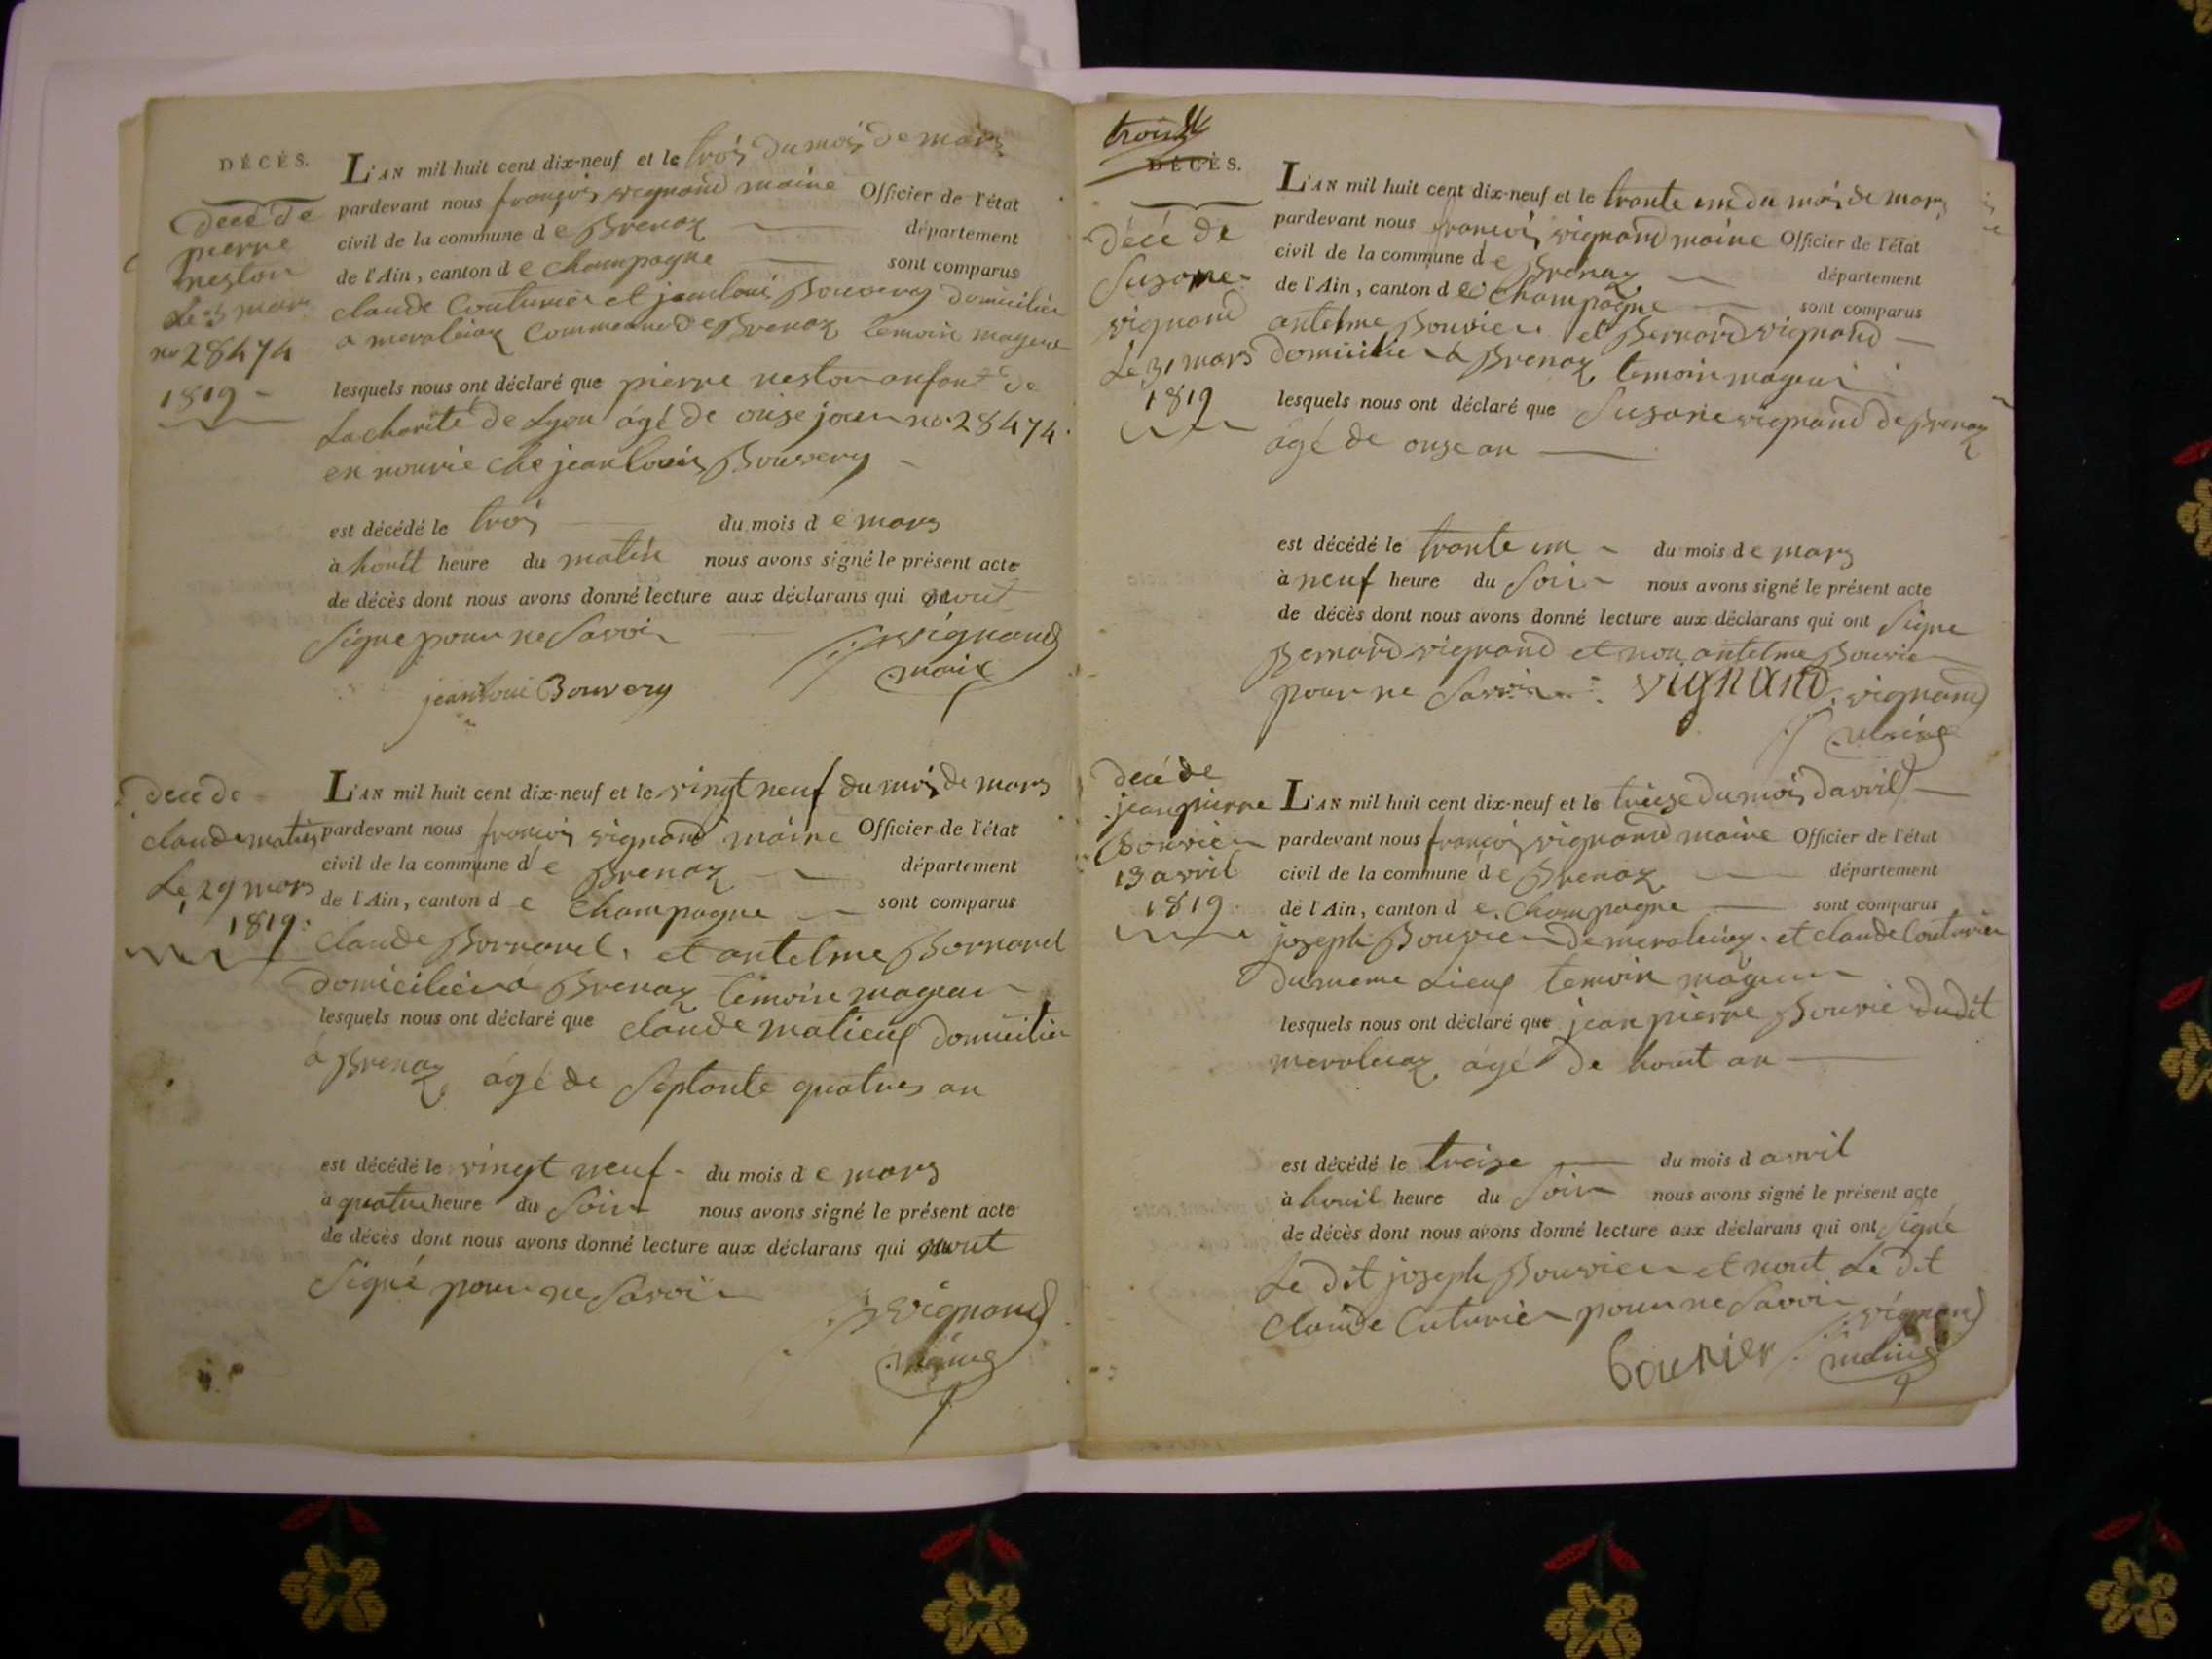 DÉCÈS.
decé de
pierre
neston
Le 3 mars
no 28474
1819
L'AN mil huit cent dix-neuf et le trois du mois de mars
pardevant nous françois vignand maire Officier de l'état
civil de la commune de Brenaz département
de l'Ain, canton de Champagne sont comparus
claude Couturier et jean loui Bouvery domicilier
a meraleiaz Commune de Brenaz temoin mageur
lesquels nous ont déclaré que pierre neston anfant de
La charité de Lyon agé de onse jour no. 28474.
en nourie che jean louis Bouvery
est décédé le trois du mois de mars
à houit heure du matin nous avons signé le présent acte
de décès dont nous avons donné lecture aux déclarans qui nont
Signe pour ne Savoir vignand
maire
jean loui Bouvery
decé de
claude matieu
Le 29 mars
1819.
L'AN mil huit cent dix-neuf et le vingt neuf du mois de mars
pardevant nous françois vignand maire Officier de l'état
civil de la commune de Brenaz département
de l'Ain, canton de Champagne sont comparus
Claude Bornarel et antelme Bornarel
domicilier à Brenaz temoin mageur
lesquels nous ont déclaré que claude matieux domicilier
à Brenaz agé de Septante quatres an
est décédé le vingt neuf du mois de mars
à quatre heure du Soir nous avons signé le présent acte
de décès dont nous avons donné lecture aux déclarans qui nont
Signé pour ne Savoir vignand
maire
trois
DÉCÈS.
décé de
Susane
vignand
Le 31 mars
1819
L'AN mil huit cent dix-neuf et le trante un du mois de mars
pardevant nous françois vignand maire Officier de l'état
civil de la commune de Brenaz département
de l'Ain, canton de Champagne sont comparus
antelme Bouvier et Bernard vignand
domicilier à Brenaz temoin mageur
lesquels nous ont déclaré que Susane vignand de Brenaz
agé de onse an
est décédé le trante un du mois de mars
à neuf heure du Soir nous avons signé le présent acte
de décès dont nous avons donné lecture aux déclarans qui ont Signe
Bernard vignand et non antelme Bouvier
pour ne Savoir vignand vignand
maire
decé de
jean pierre
Bouvier
13 avril
1819.
L'AN mil huit cent dix-neuf et le treise du mois d'avril
pardevant nous françois vignand maire Officier de l'état
civil de la commune de Brenaz département
de l'Ain, canton de Champagne sont comparus
joseph Bouvier de meraleiaz et claude Couturier
du meme Lieux temoin mageur
lesquels nous ont déclaré que jean pierre Bouvie dudit
meraleiaz agé de houit an
est décédé le treise du mois d avril
à houit heure du Soir nous avons signé le présent acte
de décès dont nous avons donné lecture aux déclarans qui ont Signé
Le dit joseph Bouvier et nont Le dit
Claude Cuturier pour ne Savoir vignand
bouvier maire